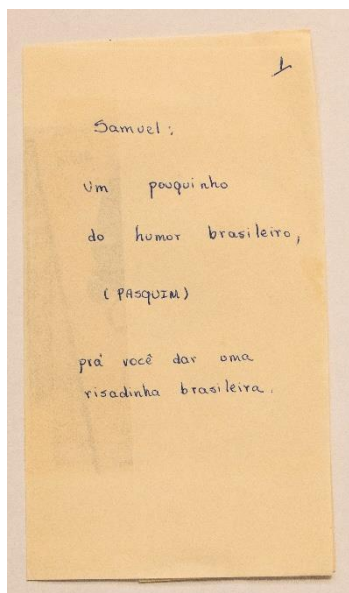 1
Samuel:
Um pouquinho
do humor brasileiro,
(PASQUIM)
prá você dar uma
risadinha brasileira.